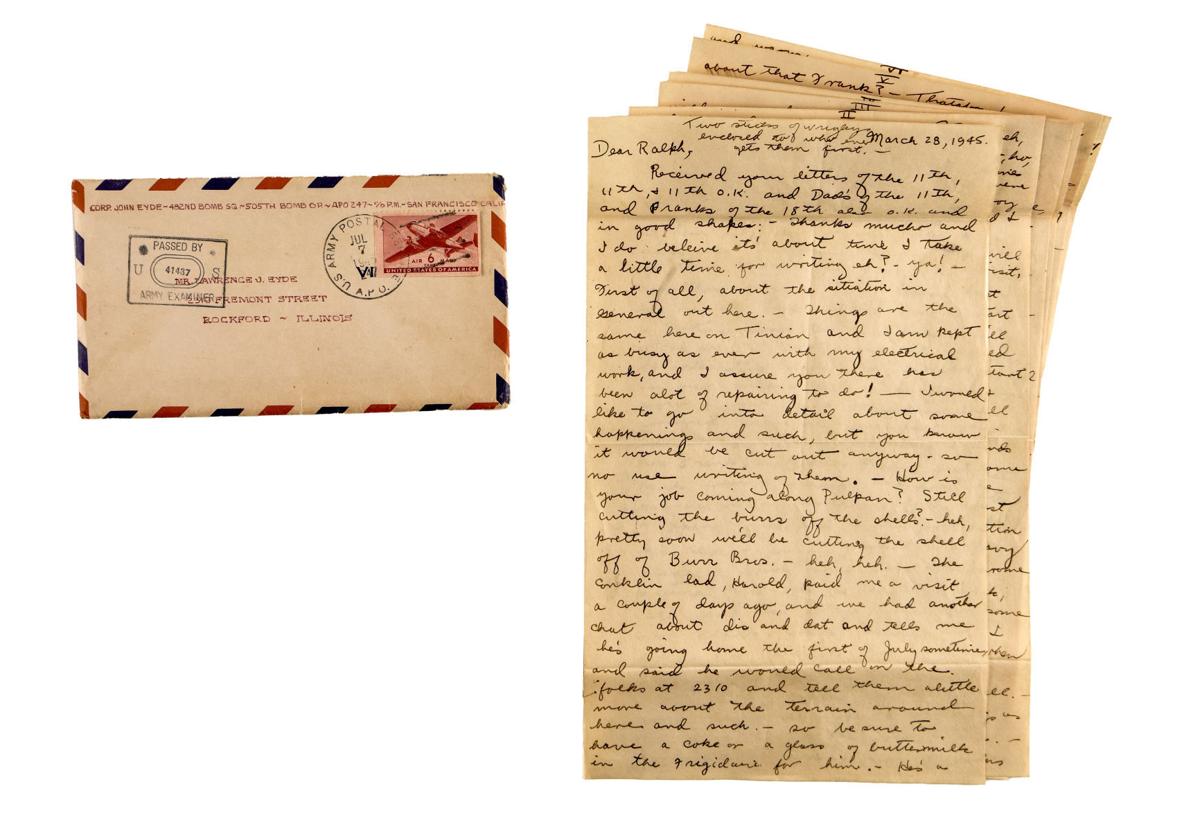 CORP. JOHN EYDE-482ND BOMB SQ~505TH BOMB GR~APO 247~℅ P.M.-SAN FRANCISCO CALIF
PASSED BY
U 41437 S
ARMY EXAMINER
U.S. ARMY POSTAL
JUL
7
A.P.O.
AIR 6
UNITED STATES OF AMERICA
MR. LAWRENCE J. EYDE
2310 FREMONT STREET
ROCKFORD ~ ILLINOIS
about that Frank? -
VI
V
III
II
Two sticks of wrigleys
enclosed to who ever
gets them first. -
March 28, 1945.
Dear Ralph,
Received your letters of the 11th,
11th, & 11th O.K. and Dad's of the 11th,
and Franks of the 18th also O.K. and
in good shapes: - Thanks mucho and
I do beleive it's about time I take
a little time for writing eh? ya! -
First of all, about the sitiation in
General out here. - Things are the
same here on Tinian and I am kept
as busy as ever with my electrical
work, and I assure you there has
been alot of repairing to do! - I would
like to go into detail about some
happenings and such, but you know
it would be cut out anyway - so
no use writing of them. - How is
your job coming along Pulpan? Still
cutting the burrs off the shells? - heh,
pretty soon we'll be cutting the shell
off of Burr Bros. - heh, heh. - The
Conklin lad, Harold, paid me a visit
a couple of days ago, and we had another
chat about dis and dat and tells me
he's going home the first of July sometime,
and said he would call on the
folks at 2310 and tell them alittle
more about the terrain around
here and such. - so be sure to
have a coke or a glass of buttermilk
in the Frigidaire for him. - He's a